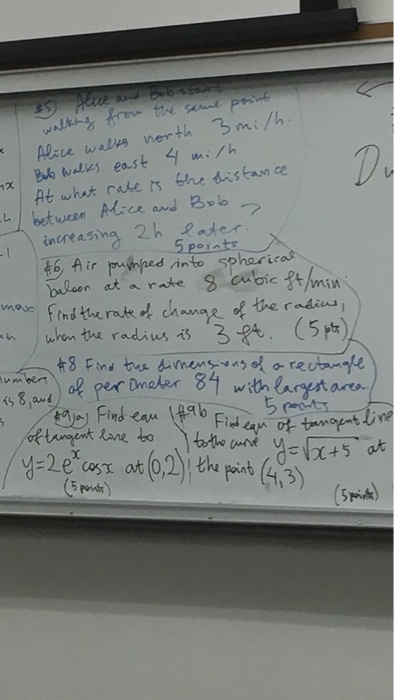 #5) Alice and Bob start
walking from the same point
Alice walks north 3 mi/h.
Bob walks east 4 mi/h
At what rate is the distance
between Alice and Bob
increasing 2h later?
5 points
#6, Air pumped into spherical
baloon at a rate 8 cubic ft/min.
Find the rate of change of the radius,
when the radius is 3 ft. (5 pts)
#8 Find the dimensions of a rectangle
of perimeter 84 with largest area
5 points
#9)a) Find equ
of tangent line to
y=2e^x cosx at (0,2)
(5 points)
#9b Find equ of tangent line
to the curve y=√x+5 at
the point (4,3)
(5 points)
numbers
is 8, and
max